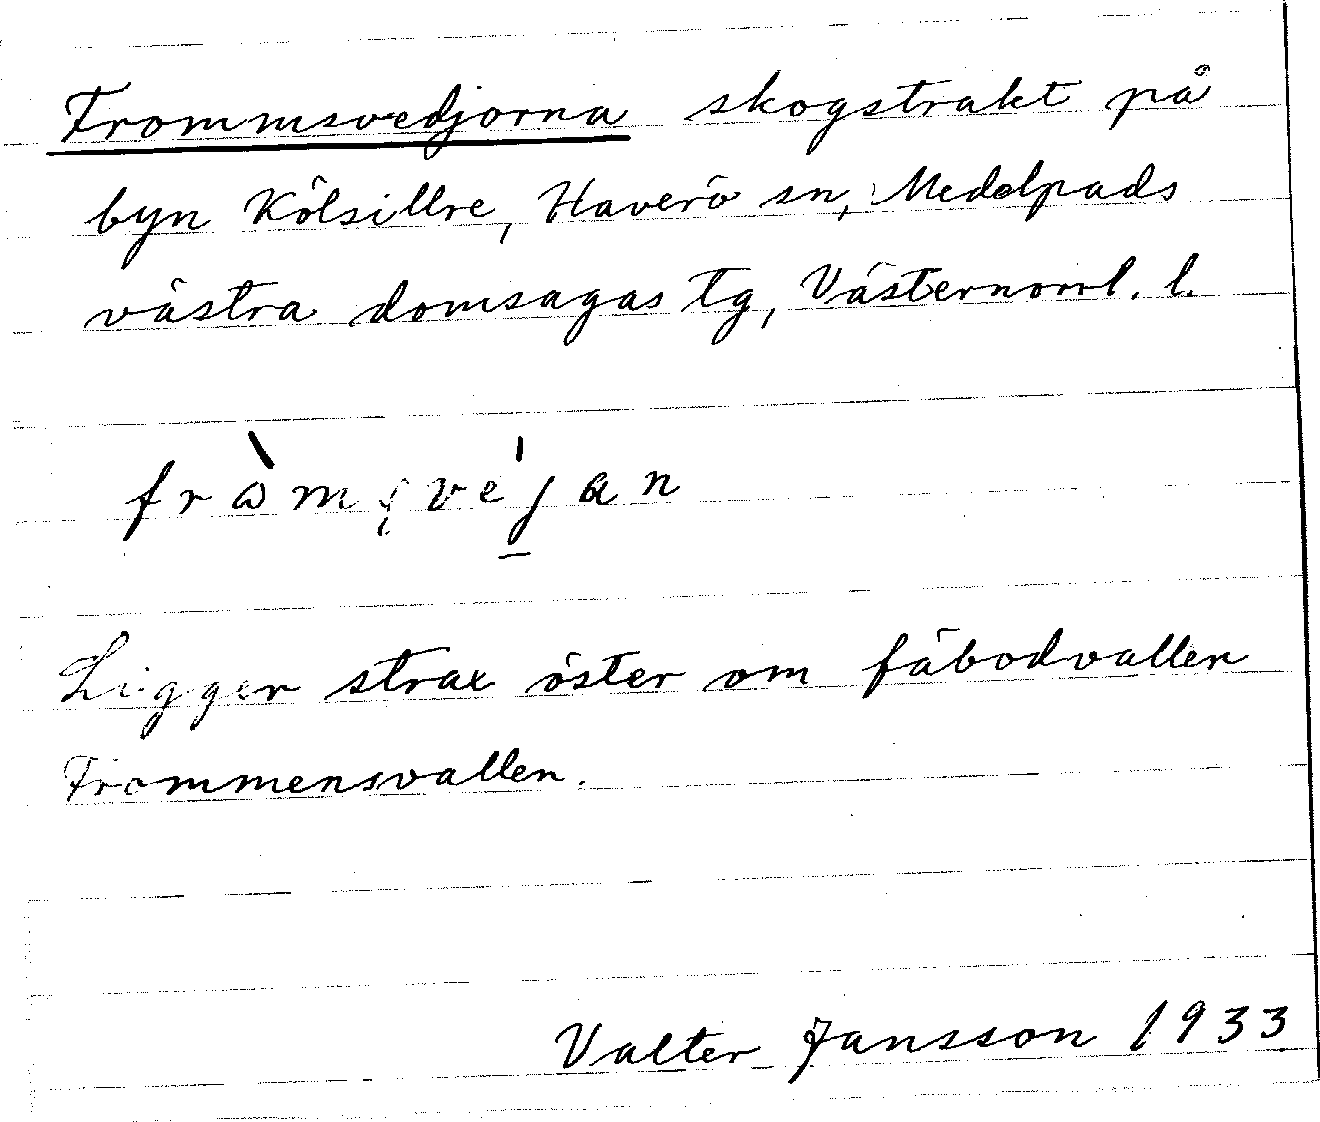 Frommsvedjorna skogstrakt på
byn Kölsillre, Haverö sn, Medelpads
västra domsagas tg, Västernorrl. l.
fròmsvéjan
Ligger strax öster om fäbodvallen
Frommensvallen.
Valter Jansson 1933